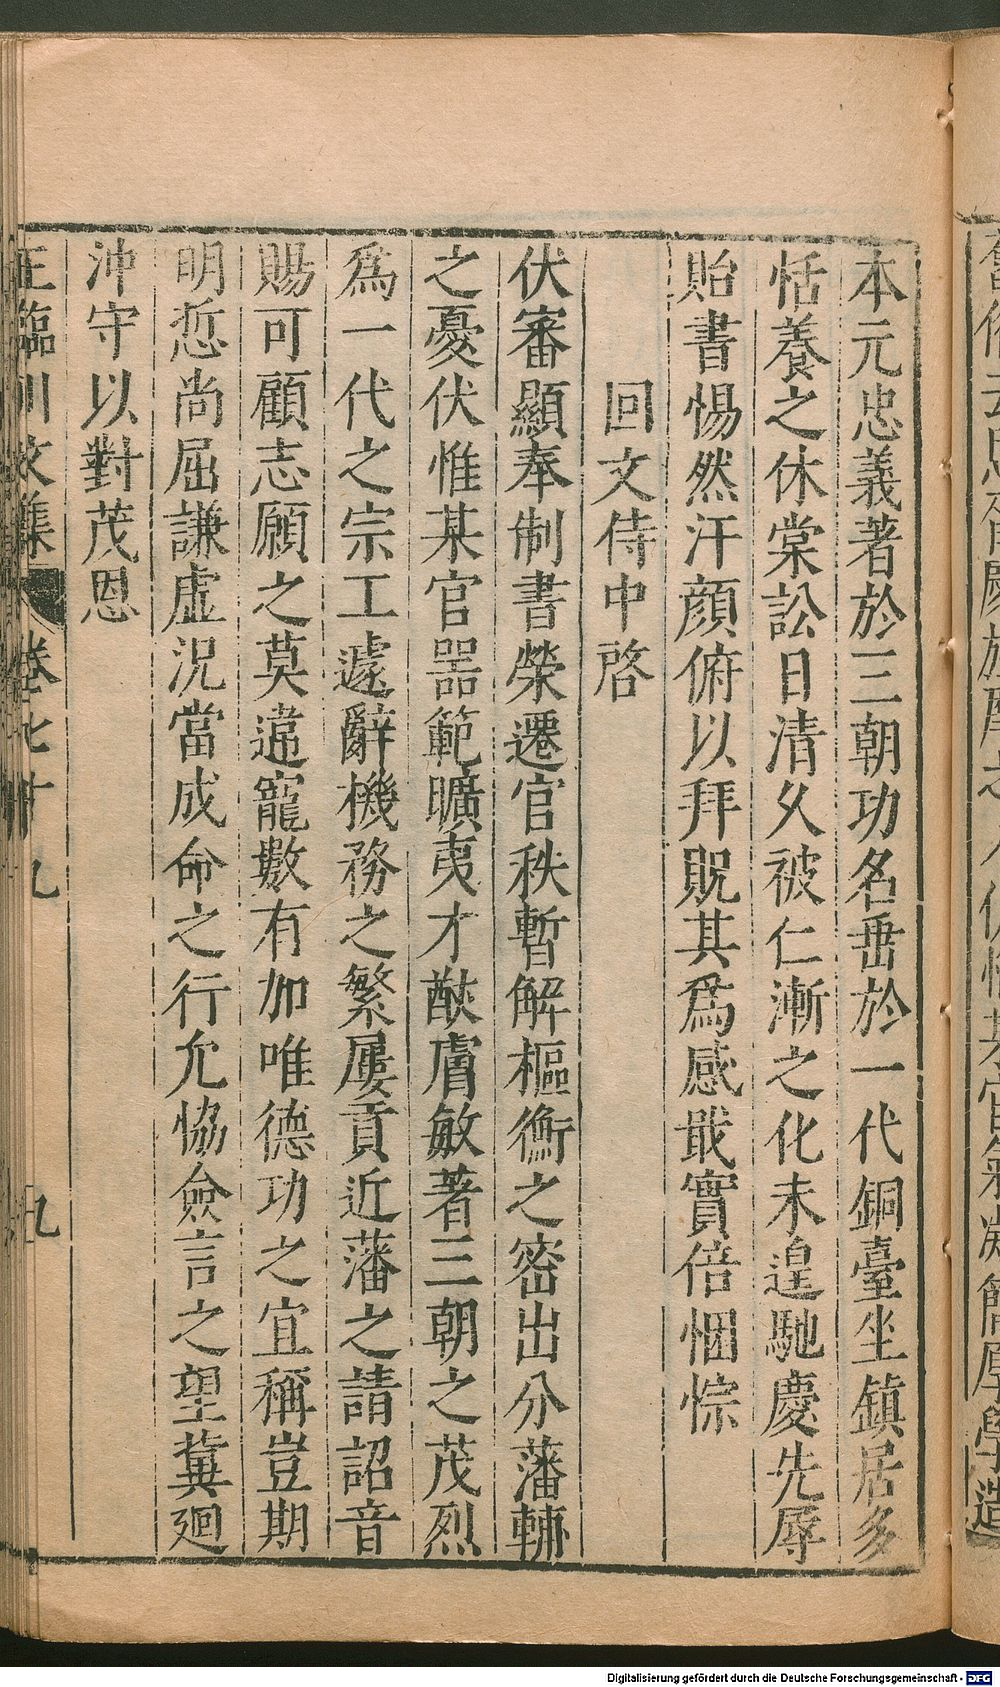 本元忠義著於三朝功名垂於一代銅臺坐鎮居多
恬養之休棠訟日清久被仁漸之化未遑馳慶先辱
貽書惕然汗顏俯以拜貺其爲感戢實倍悃悰
回文侍中啓
伏審顯奉制書榮遷官秩暫解樞衡之密出分藩輔
之憂伏惟某官器範曠夷才猷膚敏著三朝之茂烈
爲一代之宗工遽辭機務之繁屢貢近藩之請詔音
賜可顧志願之莫違寵數有加唯德功之宜稱豈期
明悊尚屈謙虛況當成命之行允協僉言之望冀廻
沖守以對茂恩
王臨川文集 卷七十九 九
Digitalisierung gefördert durch die Deutsche Forschungsgemeinschaft - DFG